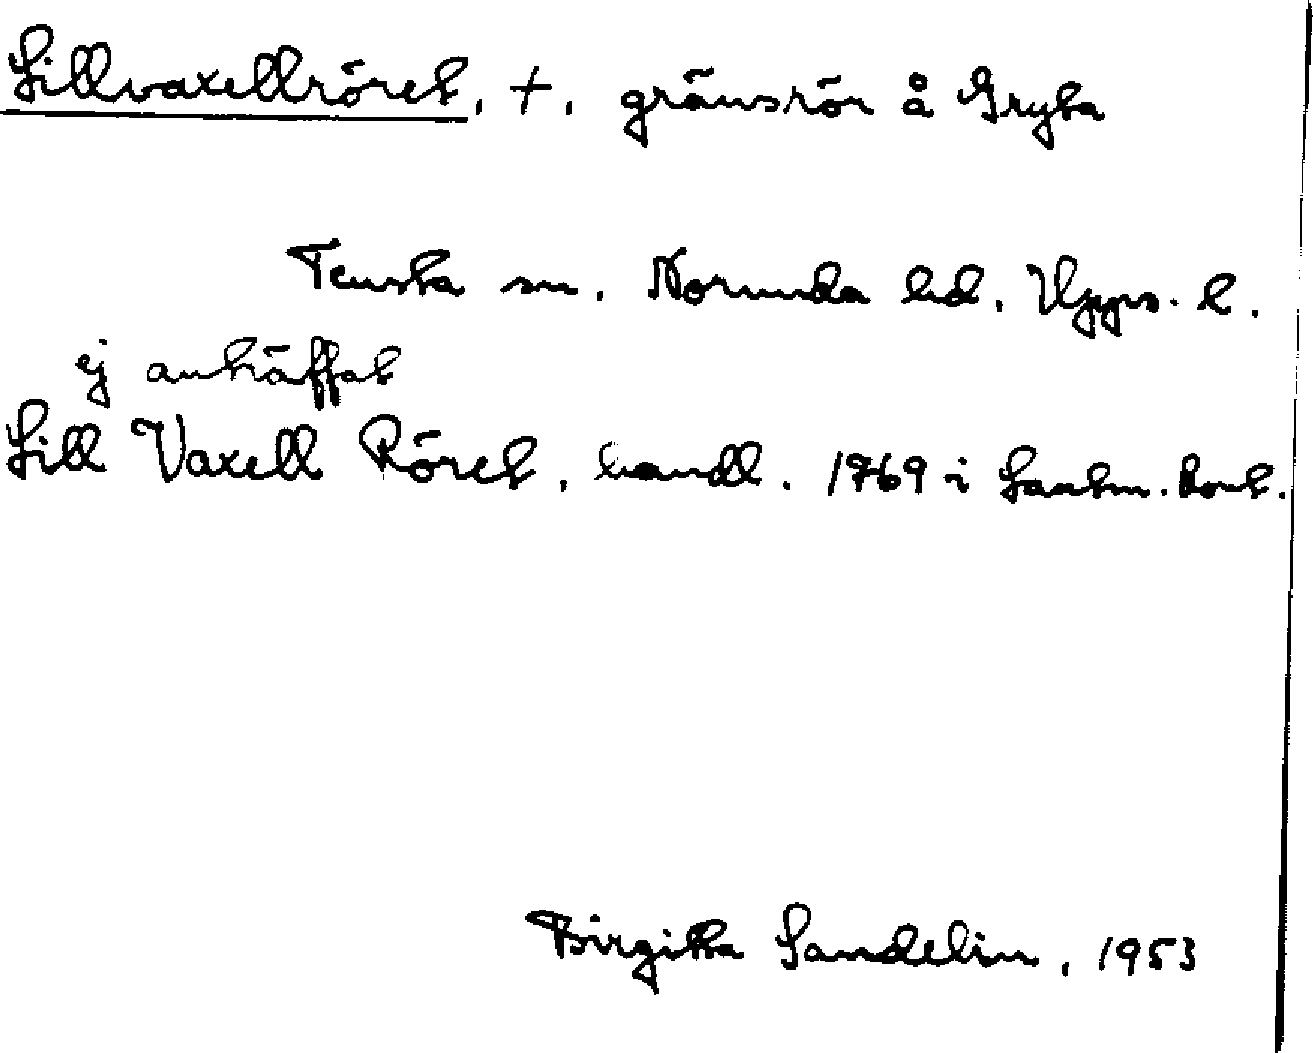 Lillvaxellröret, +, gränsrör å Gryta
Tensta sn. Norunda hd. Upps. l.
ej anträffat
Lill Vaxell Röret, handl. 1769 i Lantm. kont.
Birgitta Sandelin, 1953